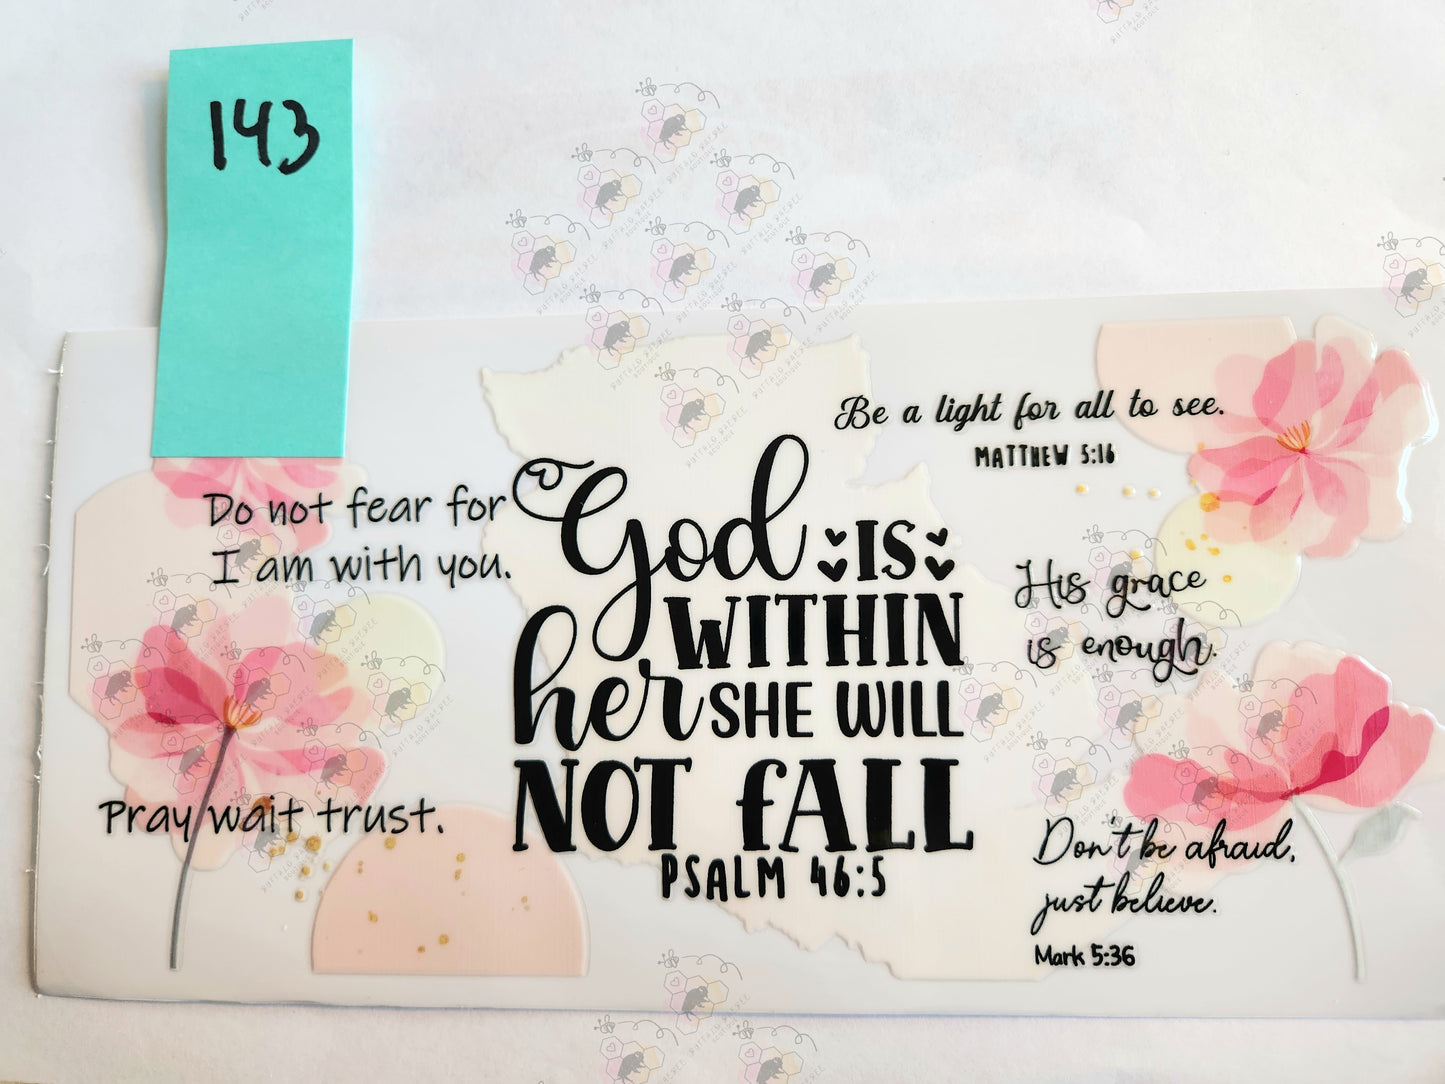 143
Be a light for all to see.
MATTHEW 5:16
Do not fear for
I am with you.
God IS
WITHIN
her SHE WILL
NOT fALL
PSALM 46:5
His grace
is enough.
Pray wait trust.
Don't be afraid,
just believe.
Mark 5:36
BUFFALO BAEBEE
BOUTIQUE